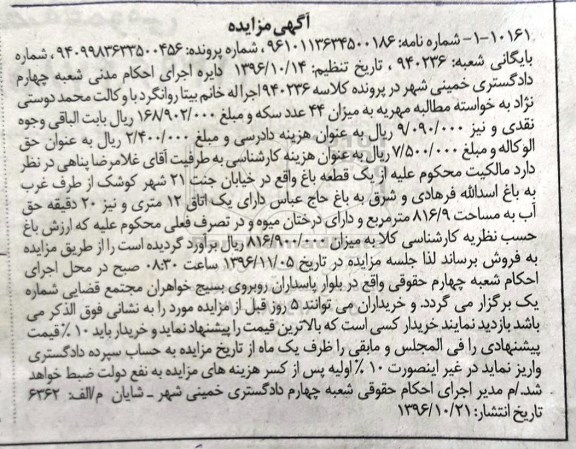 آگهی مزایده
۱۰۱۶۱-۱- شماره نامه: ۹۶۱۰۱۱۳۶۳۴۵۰۰۱۸۶، شماره پرونده: ۹۴۰۹۹۸۳۶۳۳۵۰۰۴۵۶، شماره
بایگانی شعبه: ۹۴۰۲۳۶ ، تاریخ تنظیم: ۱۳۹۶/۱۰/۱۴ دایره اجرای احکام مدنی شعبه چهارم
دادگستری خمینی شهر در پرونده کلاسه ۹۴۰۲۳۶ اجرا له خانم بیتا روانگرد با وکالت محمد دوستی
نژاد به خواسته مطالبه مهریه به میزان ۴۴ عدد سکه و مبلغ ۱۶۸/۹۰۲/۰۰۰ ریال بابت الباقی وجوه
نقدی و نیز ۹/۰۹۰/۰۰۰ ریال به عنوان هزینه دادرسی و مبلغ ۲/۴۰۰/۰۰۰ ریال به عنوان حق
الوکاله و مبلغ ۷/۵۰۰/۰۰۰ ریال به عنوان هزینه کارشناسی به طرفیت آقای غلامرضا پناهی در نظر
دارد مالکیت محکوم علیه از یک قطعه باغ واقع در خیابان جنت ۲۱ شهر کوشک از طرف غرب
به باغ اسدالله فرهادی و شرق به باغ حاج عباس دارای یک اتاق ۱۲ متری و نیز ۲۰ دقیقه حق
آب به مساحت ۸۱۶/۹ مترمربع و دارای درختان میوه و در تصرف فعلی محکوم علیه که ارزش باغ
حسب نظریه کارشناسی کلا به میزان ۸۱۶/۹۰۰/۰۰۰ ریال برآورد گردیده است را از طریق مزایده
به فروش برساند لذا جلسه مزایده در تاریخ ۱۳۹۶/۱۱/۰۵ ساعت ۰۸:۳۰ صبح در محل اجرای
احکام شعبه چهارم حقوقی واقع در بلوار پاسداران روبروی بسیج خواهران مجتمع قضایی شماره
یک برگزار می گردد. و خریداران می توانند ۵ روز قبل از مزایده مورد را به نشانی فوق الذکر می
باشد بازدید نمایند خریدار کسی است که بالاترین قیمت را پیشنهاد نماید و خریدار باید ۱۰ ٪ قیمت
پیشنهادی را فی المجلس و مابقی را ظرف یک ماه از تاریخ مزایده به حساب سپرده دادگستری
واریز نماید در غیر اینصورت ۱۰ ٪ اولیه پس از کسر هزینه های مزایده به نفع دولت ضبط خواهد
شد./م مدیر اجرای احکام حقوقی شعبه چهارم دادگستری خمینی شهر ـ شایان م/الف: ۶۳۶۲
تاریخ انتشار: ۱۳۹۶/۱۰/۲۱